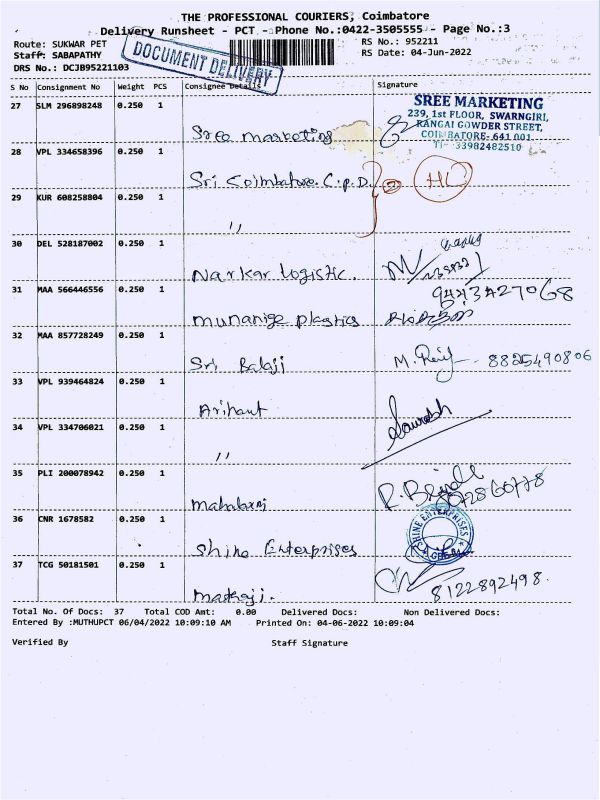 THE PROFESSIONAL COURIERS, Coimbatore
Delivery Runsheet - PCT - Phone No.:0422-3505555 - Page No.:3
Route: SUKWAR PET
RS No.: 952211
Staff: SABAPATHY
RS Date: 04-Jun-2022
DRS No.: DCJB95221103
DOCUMENT DELIVERY
S No Consignment No Weight PCS Consignee Details Signature
27 SLM 296898248 0.250 1
Sree marketing
SREE MARKETING
239, 1st FLOOR, SWARNGIRI,
RANGAI GOWDER STREET,
COIMBATORE- 641 001
33982482510
28 VPL 334658396 0.250 1
Sri Coimbatore. C.P.D. HC
29 KUR 608258804 0.250 1
"
30 DEL 528187002 0.250 1
Narkar logistic.
31 MAA 566446556 0.250 1
plastics
32 MAA 857728249 0.250 1
Sri Balaji 8825490806
33 VPL 939464824 0.250 1
Arihant
34 VPL 334706021 0.250 1
" Saurabh
35 PLI 200078942 0.250 1
36 CNR 1678582 0.250 1
Shine Enterprises
SHINE ENTERPRISES
37 TCG 50181501 0.250 1
8122892498.
Total No. Of Docs: 37 Total COD Amt: 0.00 Delivered Docs: Non Delivered Docs:
Entered By :MUTHUPCT 06/04/2022 10:09:10 AM Printed On: 04-06-2022 10:09:04
Verified By Staff Signature